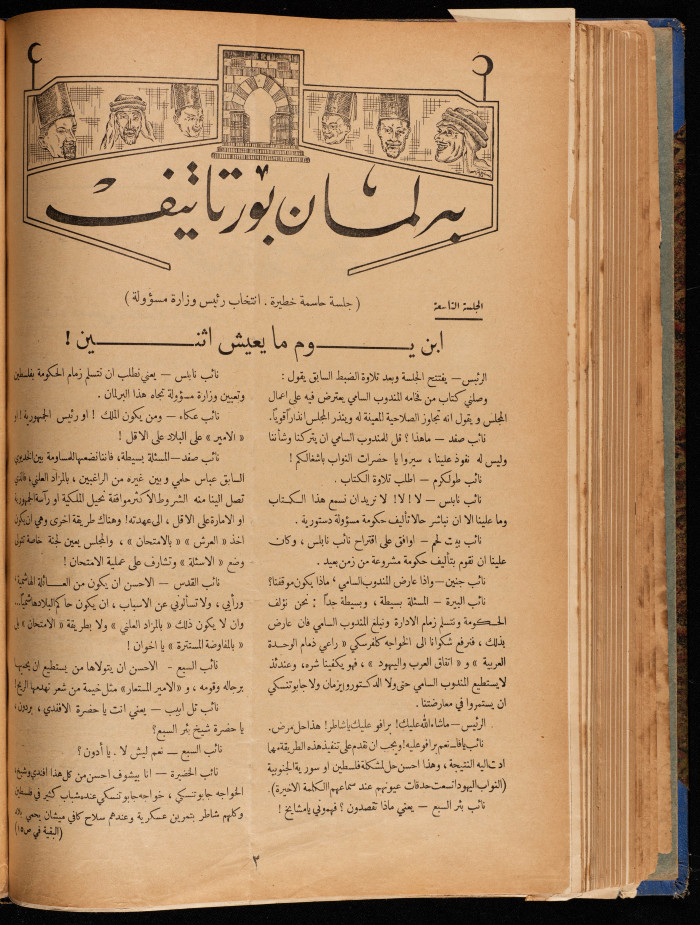 برلمان بورتاتيف
الجلسة التاسعة
( جلسة حاسمة خطيرة . انتخاب رئيس وزارة مسؤولة )
ابن يــوم ما يعيش اثنــين !
الرئيس — يفتتح الجلسة وبعد تلاوة الضبط السابق يقول :
وصلني كتاب من فخامة المندوب السامي يعترض فيه على اعمال
المجلس ويقول انه تجاوز الصلاحية المعينة له وينذر المجلس انذاراً قوياً.
نائب صفد — ماهذا ؟ قل للمندوب السامي ان يتركنا وشأننا
وليس له نفوذ علينا ، سيروا يا حضرات النواب باشغالكم !
نائب طولكرم — اطلب تلاوة الكتاب .
نائب نابلس — لا ! لا ! لا نريد ان نسمع هذا الكتاب
وما علينا الا ان نباشر حالا تأليف حكومة مسؤولة دستورية .
نائب بيت لحم — اوافق على اقتراح نائب نابلس ، وكان
علينا ان نقوم بتأليف حكومة مشروعة من زمن بعيد .
نائب جنين — واذا عارض المندوب السامي ، ماذا يكون موقفنا؟
نائب البيرة — المسئلة بسيطة ، وبسيطة جداً : نحن نؤلف
الحكومة ونتسلم زمام الادارة ونبلغ المندوب السامي فان عارض
بذلك ، فنرفع شكوانا الى الخواجه كلفرسكي « راعي ذمام الوحدة
العربية » و « اتفاق العرب واليهود » ، فهو يكفينا شره، وعندئذ
لايستطيع المندوب السامي حتى ولا الدكتور وايزمان ولا جابوتنسكي
ان يستمروا في معارضتنا .
الرئيس — ماشاء الله عليك! برافو عليك ياشاطر! هذا حل مرض.
نائب يافا — نعم برافو عليه! ويجب ان نقدم على تنفيذ هذه الطريقة مهما
ادت اليه النتيجة ، وهذا احسن حل لمشكلة فلسطين او سورية الجنوبية
(النواب اليهود اتسعت حدقات عيونهم عند سماعهم الكلمة الاخيرة).
نائب بئر السبع — يعني ماذا تقصدون ؟ فهموني يا مشايخ !
نائب نابلس — يعني نطلب ان نتسلم زمام الحكومة بفلسطين
وتعيين وزارة مسؤولة تجاه هذا البرلمان .
نائب عكاء — ومن يكون الملك ! او رئيس الجمهورية ! او
« الامير » على البلاد على الاقل !
نائب صفد — المسئلة بسيطة، فاننا نضعها للمساومة بين الخديوي
السابق عباس حلمي وبين غيره من الراغبين ، بالمزاد العلني، فالذي
تصل الينا منه الشروط الأكثر موافقة نحيل الملكية او رآسة الجمهورية
او الامارة على الاقل ، الى عهدته! وهناك طريقة اخرى وهي ان يكون
اخذ « العرش » بالامتحان » ، والمجلس يعين لجنة خاصة تتولى
وضع « الاسئلة » وتشارف على عملية الامتحان !
نائب القدس — الاحسن ان يكون من العــائلة الهاشمية ،
ورأيي ، ولا تسألوني عن الاسباب ، ان يكون حاكم البلاد هاشمياً...
وان لا يكون ذلك « بالمزاد العلني » ولا بطريقة « الامتحان » بل
« بالمفاوضة المستترة » يا اخوان !
نائب السبع - الاحسن ان يتولاها من يستطيع ان يحميها
برجاله وقومه ، و « الامير المستعار » مثل خيمة من شعر تهدمها الريح !
نائب تل ابيب — يعني انت يا حضرة الافندي ، بردون ،
يا حضرة شيخ بئر السبع؟
نائب السبع — نعم ليش لا . يا أدون ؟
نائب الخضيرة — انا بيشوف احسن من كل هذا افندي وشيخ،
الخواجه جابوتنسكي ، خواجه جابوتنسكي عنده شباب كثير في فلسطين
وكلهم شاطر بتمرين عسكرية وعندهم سلاح كافي ميشان يحمي بلاد
(البقية في ص ١٥)
٣